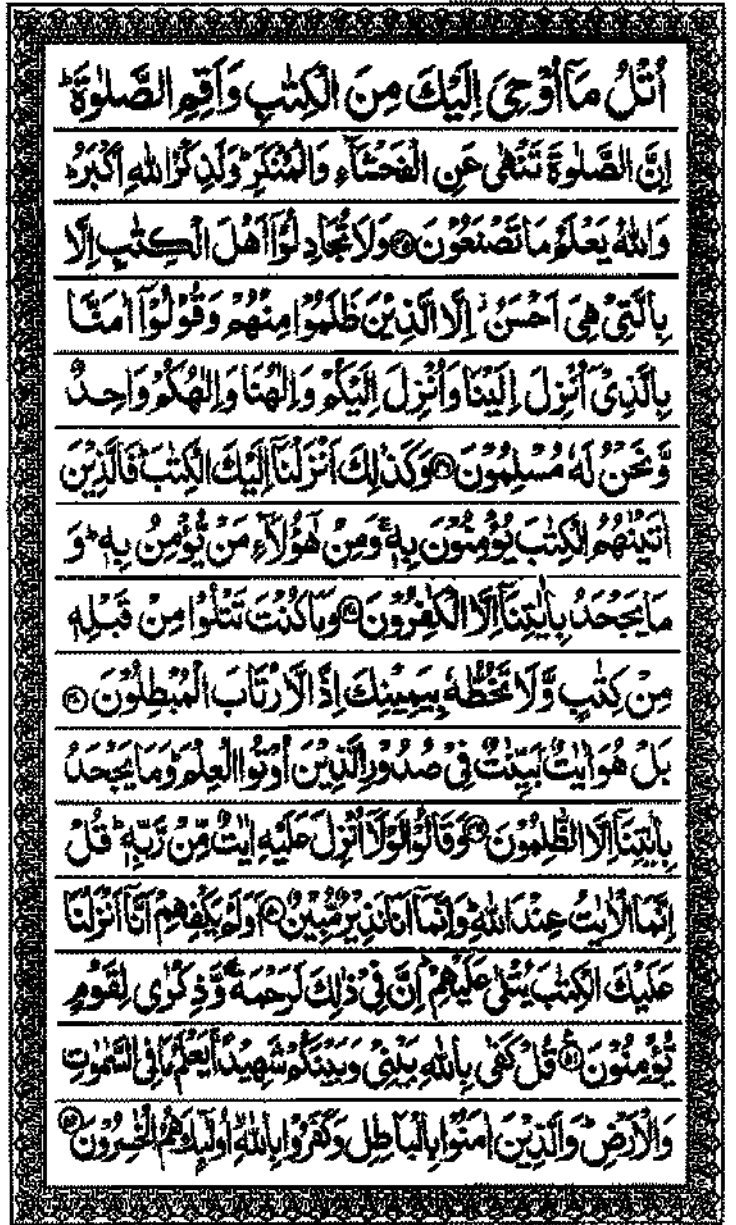 اُتْلُ مَاۤ اُوْحِیَ اِلَیْكَ مِنَ الْكِتٰبِ وَاَقِمِ الصَّلٰوةَ ؕ
اِنَّ الصَّلٰوةَ تَنْهٰی عَنِ الْفَحْشَآءِ وَالْمُنْكَرِ ؕ وَلَذِكْرُ اللّٰهِ اَكْبَرُ ؕ
وَاللّٰهُ یَعْلَمُ مَا تَصْنَعُوْنَ ﴿۴۵﴾ وَلَا تُجَادِلُوْۤا اَهْلَ الْكِتٰبِ اِلَّا
بِالَّتِیْ هِیَ اَحْسَنُ ۖ اِلَّا الَّذِیْنَ ظَلَمُوْا مِنْهُمْ وَقُوْلُوْۤا اٰمَنَّا
بِالَّذِیْۤ اُنْزِلَ اِلَیْنَا وَاُنْزِلَ اِلَیْكُمْ وَاِلٰهُنَا وَاِلٰهُكُمْ وَاحِدٌ
وَّنَحْنُ لَهٗ مُسْلِمُوْنَ ﴿۴۶﴾ وَكَذٰلِكَ اَنْزَلْنَاۤ اِلَیْكَ الْكِتٰبَ ؕ فَالَّذِیْنَ
اٰتَیْنٰهُمُ الْكِتٰبَ یُؤْمِنُوْنَ بِهٖ ۚ وَمِنْ هٰۤؤُلَآءِ مَنْ یُّؤْمِنُ بِهٖ ؕ وَ
مَا یَجْحَدُ بِاٰیٰتِنَاۤ اِلَّا الْكٰفِرُوْنَ ﴿۴۷﴾ وَمَا كُنْتَ تَتْلُوْا مِنْ قَبْلِهٖ
مِنْ كِتٰبٍ وَّلَا تَخُطُّهٗ بِیَمِیْنِكَ اِذًا لَّارْتَابَ الْمُبْطِلُوْنَ ﴿۴۸﴾
بَلْ هُوَ اٰیٰتٌۢ بَیِّنٰتٌ فِیْ صُدُوْرِ الَّذِیْنَ اُوْتُوا الْعِلْمَ ؕ وَمَا یَجْحَدُ
بِاٰیٰتِنَاۤ اِلَّا الظّٰلِمُوْنَ ﴿۴۹﴾ وَقَالُوْا لَوْلَاۤ اُنْزِلَ عَلَیْهِ اٰیٰتٌ مِّنْ رَّبِّهٖ ؕ قُلْ
اِنَّمَا الْاٰیٰتُ عِنْدَ اللّٰهِ ؕ وَاِنَّمَاۤ اَنَا نَذِیْرٌ مُّبِیْنٌ ﴿۵۰﴾ اَوَلَمْ یَكْفِهِمْ اَنَّاۤ اَنْزَلْنَا
عَلَیْكَ الْكِتٰبَ یُتْلٰی عَلَیْهِمْ ؕ اِنَّ فِیْ ذٰلِكَ لَرَحْمَةً وَّذِكْرٰی لِقَوْمٍ
یُّؤْمِنُوْنَ ﴿۵۱﴾ قُلْ كَفٰی بِاللّٰهِ بَیْنِیْ وَبَیْنَكُمْ شَهِیْدًا ۚ یَعْلَمُ مَا فِی السَّمٰوٰتِ
وَالْاَرْضِ ؕ وَالَّذِیْنَ اٰمَنُوْا بِالْبَاطِلِ وَكَفَرُوْا بِاللّٰهِ ۙ اُولٰٓئِكَ هُمُ الْخٰسِرُوْنَ ﴿۵۲﴾